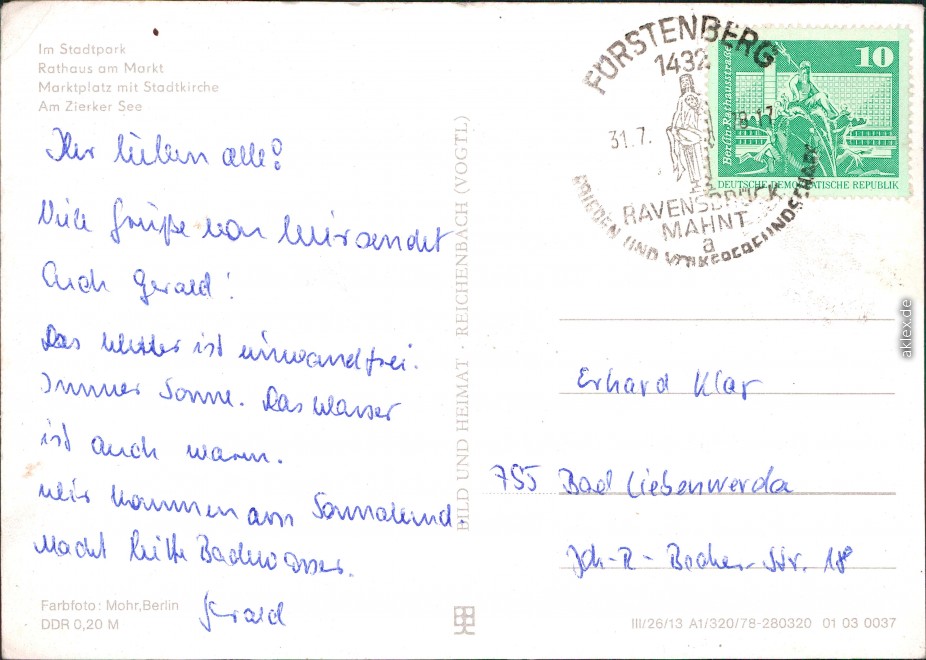 Im Stadtpark
Rathaus am Markt
Marktplatz mit Stadtkirche
Am Zierker See
Ihr lieben alle!
Viele Grüße von hier sendet
Euch Gerald!
Das Wetter ist einwandfrei.
Immer Sonne. Das Wasser
ist auch warm.
Wir kommen am Sonnabend.
Macht bitte Badewasser.
Gerald
Farbfoto: Mohr, Berlin
DDR 0,20 M
BILD UND HEIMAT · REICHENBACH (VOGTL)
FÜRSTENBERG
1432
31.7.
-17
RAVENSBRÜCK
MAHNT
a
FRIEDEN UND VÖLKERFREUNDSCHAFT
10
Berlin-Rathausstraße
DEUTSCHE DEMOKRATISCHE REPUBLIK
Erhard Klar
755 Bad Liebenwerda
Joh-R-Becher-Str. 18
III/26/13 A1/320/78-280320 01 03 0037
aklex.de